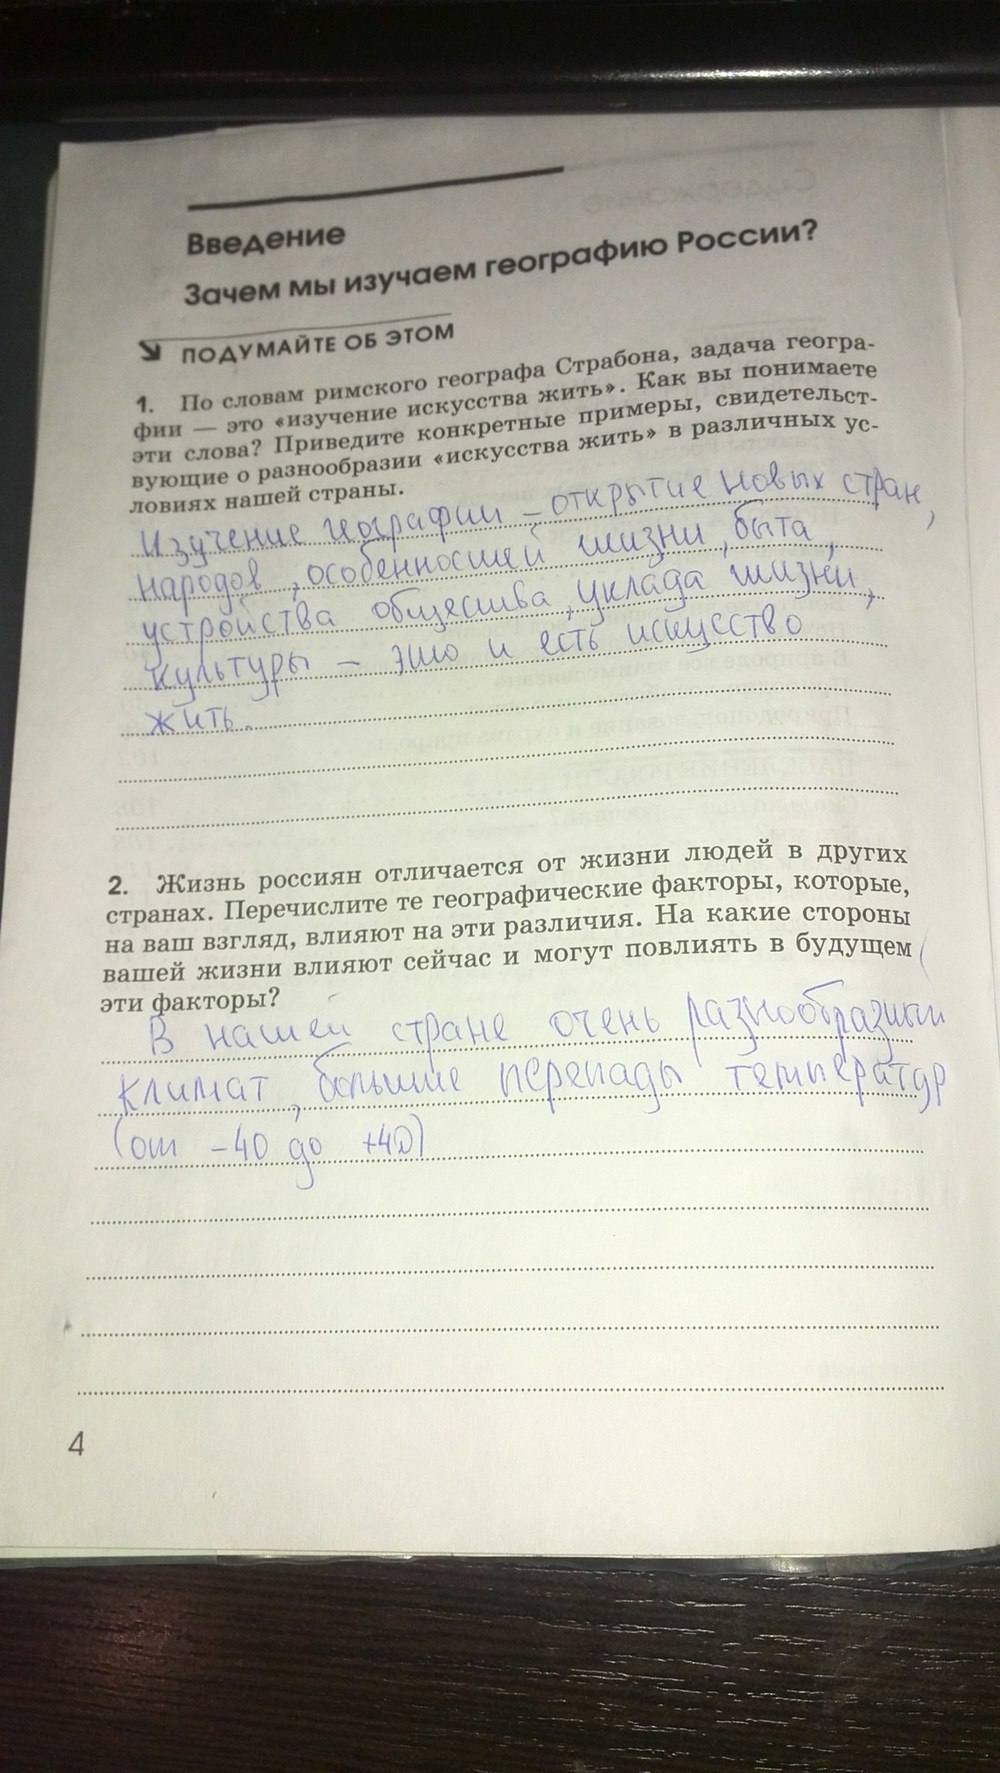 Введение
Зачем мы изучаем географию России?
ПОДУМАЙТЕ ОБ ЭТОМ
1. По словам римского географа Страбона, задача геогра-
фии — это «изучение искусства жить». Как вы понимаете
эти слова? Приведите конкретные примеры, свидетельст-
вующие о разнообразии «искусства жить» в различных ус-
ловиях нашей страны.
Изучение географии – открытие новых стран,
народов, особенностей жизни, быта,
устройства общества, уклада жизни,
культуры – это и есть искусство
жить.
2. Жизнь россиян отличается от жизни людей в других
странах. Перечислите те географические факторы, которые,
на ваш взгляд, влияют на эти различия. На какие стороны
вашей жизни влияют сейчас и могут повлиять в будущем
эти факторы?
В нашей стране очень разнообразный
климат, большие перепады температур
(от -40 до +40)
4